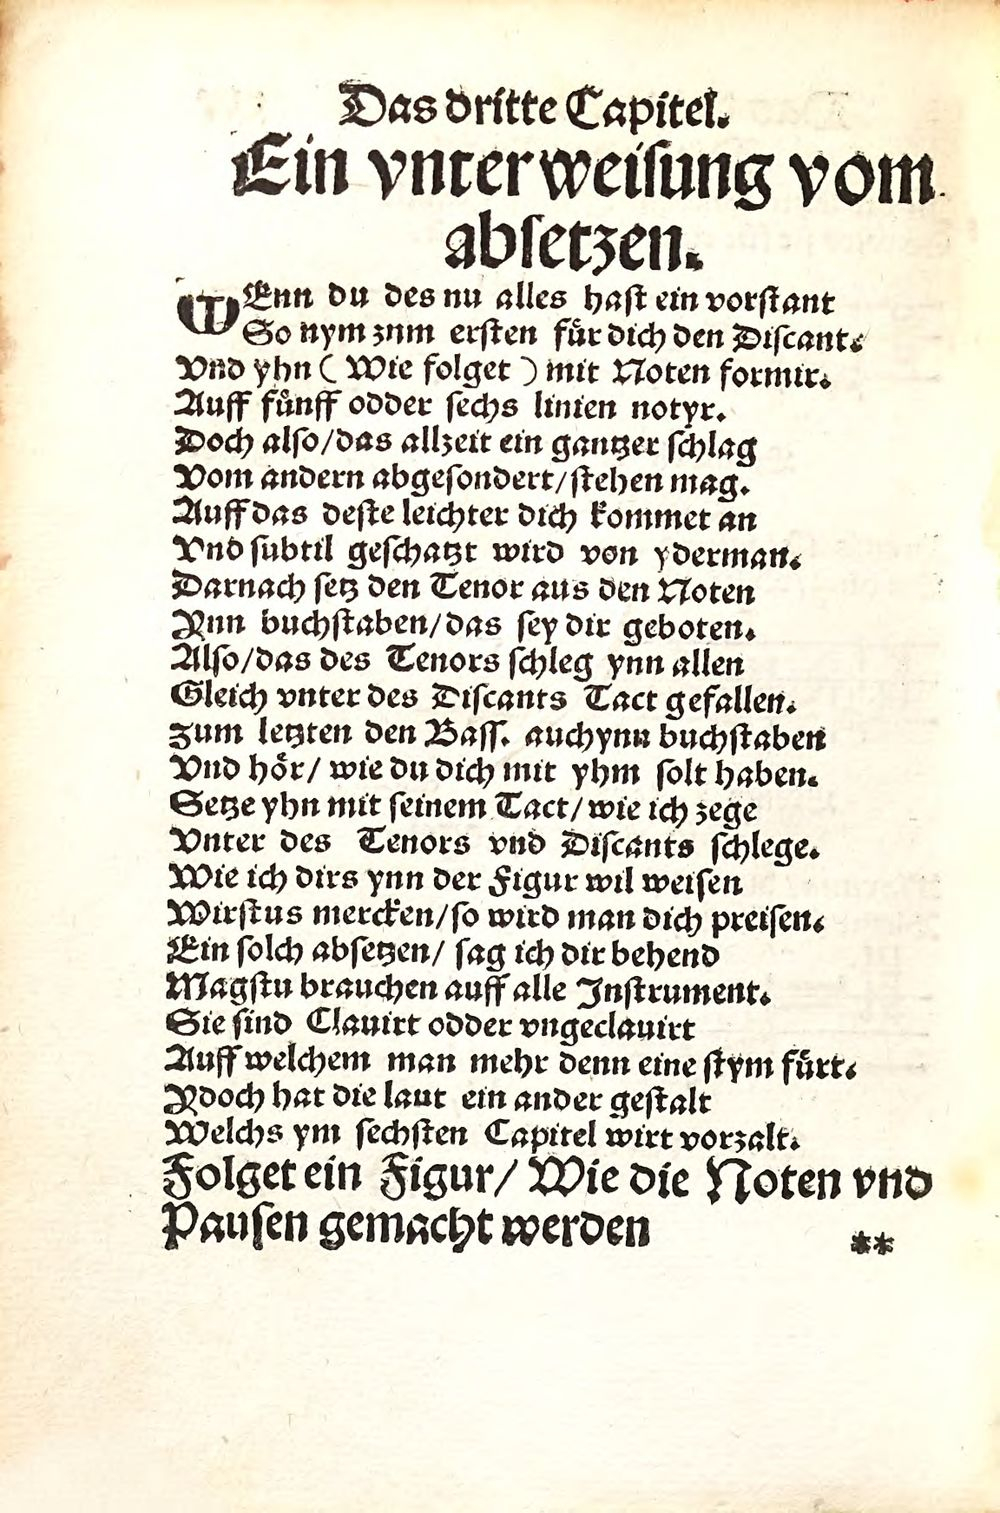 Das dritte Capitel.
Ein vnterweiſung vom
abſetzen.
WEnn du des nu alles haſt ein vorſtant
So nym znm erſten fuͤr dich den Diſcant.
Vnd yhn ( Wie folget ) mit Noten formir.
Auff fuͤnff odder ſechs linien notyr.
Doch alſo/das allzeit ein gantzer ſchlag
Vom andern abgeſondert/ſtehen mag.
Auff das deſte leichter dich kommet an
Vnd ſubtil geſchatzt wird von yderman.
Darnach ſetz den Tenor aus den Noten
Ynn buchſtaben/das ſey dir geboten.
Alſo/das des Tenors ſchleg ynn allen
Gleich vnter des Diſcants Tact gefallen.
Zum letzten den Baſſ. auch ynn buchſtaben
Vnd hoͤr/ wie du dich mit yhm ſolt haben.
Setze yhn mit ſeinem Tact/wie ich zege
Vnter des Tenors vnd Diſcants ſchlege.
Wie ich dirs ynn der Figur wil weiſen
Wirſtus mercken/ſo wird man dich preiſen.
Ein ſolch abſetzen/ ſag ich dir behend
Magſtu brauchen auff alle Inſtrument.
Sie ſind Clauirt odder vngeclauirt
Auff welchem man mehr denn eine ſtym fuͤrt.
Ydoch hat die laut ein ander geſtalt
Welchs ym ſechſten Capitel wirt vorzalt.
Folget ein Figur/ Wie die Noten vnd
Pauſen gemacht werden **